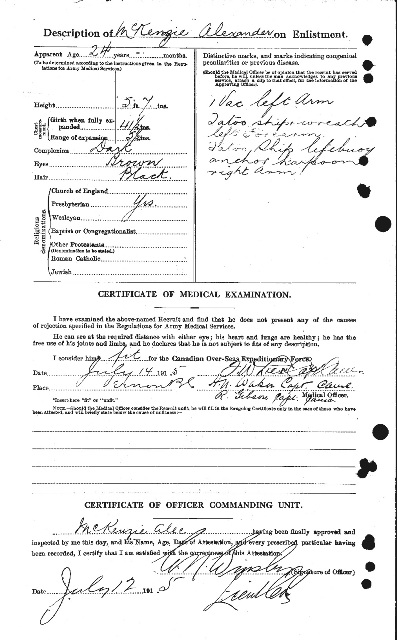 Description of McKenzie Alexander on Enlistment.
Apparent Age 24 years months
(To be determined according to the instructions given in the Regu-
lations for Army Medical Services.)
Height 5 ft. 7 ins.
Girth when fully ex-
panded ins.
Range of expansion ins.
Complexion Dark
Eyes Brown
Hair Black
Religious denominations
Church of England
Presbyterian Yes.
Wesleyan
Baptist or Congregationalist
Other Protestants
(Denomination to be stated.)
Roman Catholic
Jewish
Distinctive marks, and marks indicating congenital
peculiarities or previous disease.
(Should the Medical Officer be of opinion that the recruit has served
before, he will, unless the man acknowledges to any previous
service, attach a slip to that effect, for the information of the
Approving Officer.)
1 Vac left Arm
Tatoo, ship & wreath
left forearm
Tatoo, Ship lifebuoy
anchor harpoon
right arm
CERTIFICATE OF MEDICAL EXAMINATION.
I have examined the above-named Recruit and find that he does not present any of the causes
of rejection specified in the Regulations for Army Medical Services.
He can see at the required distance with either eye; his heart and lungs are healthy; he has the
free use of his joints and limbs, and he declares that he is not subject to fits of any description.
I consider him* fit for the Canadian Over-Seas Expeditionary Force.
Date July 14 1915
Place Vernon B.C.
Capt
Medical Officer.
R. Gibson Capt.
*Insert here "fit" or "unfit."
NOTE.—Should the Medical Officer consider the Recruit unfit, he will fill in the foregoing Certificate only in the case of those who have
been attested, and will briefly state below the cause of unfitness:—
CERTIFICATE OF OFFICER COMMANDING UNIT.
McKenzie Alec having been finally approved and
inspected by me this day, and his Name, Age, Date of Attestation, and every prescribed particular having
been recorded, I certify that I am satisfied with the correctness of this Attestation.
(Signature of Officer)
Lieut Col
Date July 17 1915